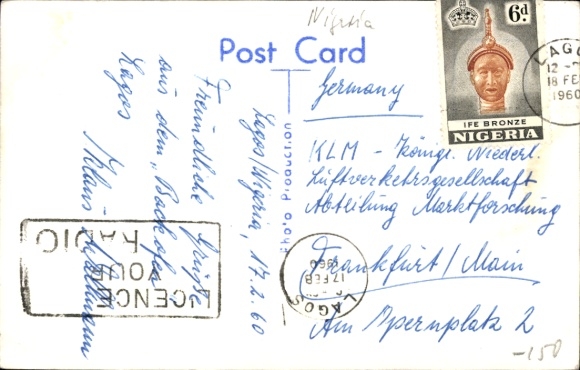 Nigeria
Post Card
6d
IFE BRONZE
NIGERIA
LAGOS
12 -
18 FE
1960
Freundliche Grüße
aus dem „Backofen"
Lagos
Klaus
Lagos/Nigeria, 17.2.60
Photo Production
Germany
KLM - Königl. Niederl.
Luftverkehrsgesellschaft
Abteilung Marktforschung
Frankfurt/Main
Am Opernplatz 2
LAGOS
17 FEB
1960
LICENCE
YOUR
RADIO
-150